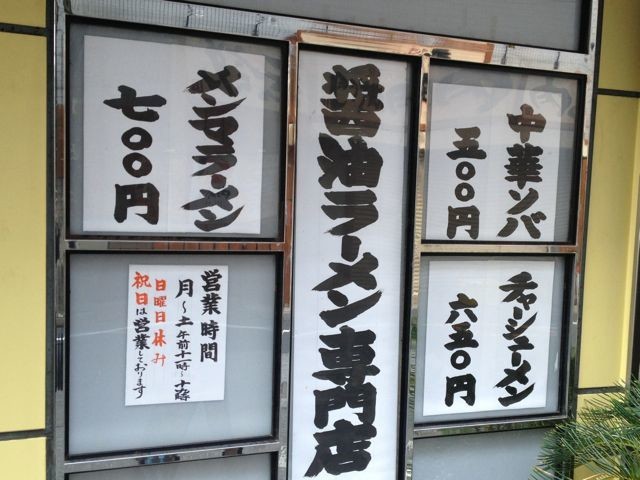 中華ソバ
五〇〇円
チャーシューメン
六五〇円
醤油ラーメン専門店
メンマラーメン
七〇〇円
営業時間
月～土午前十一時～十時
日曜日休み
祝日は営業しております